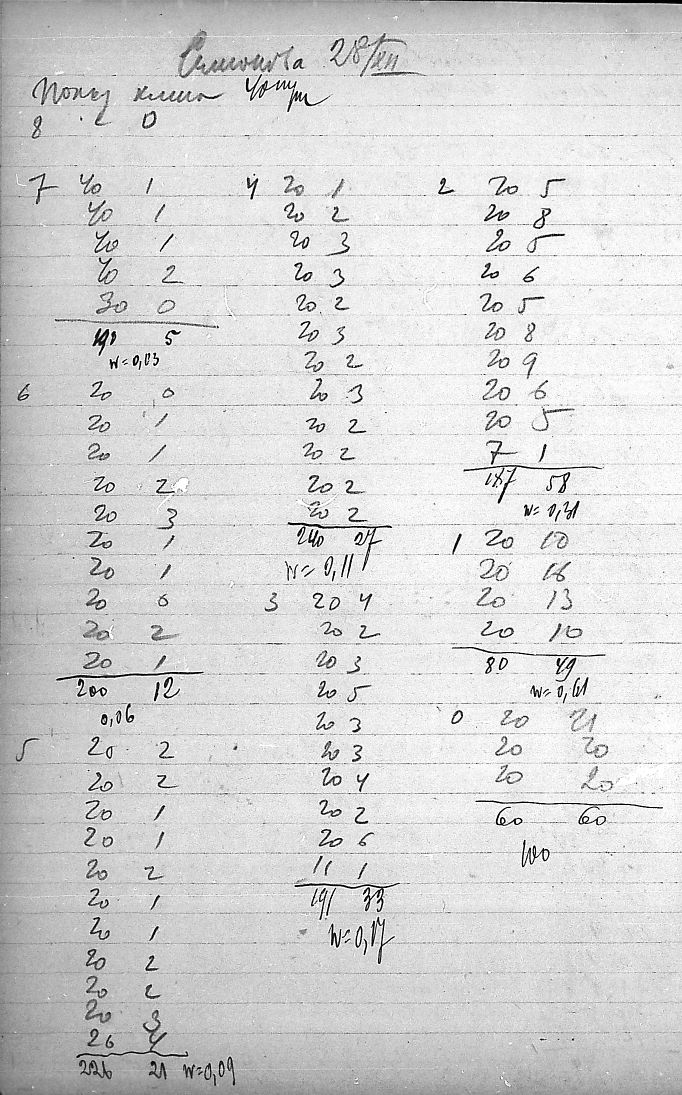 28/XII
8 0
7 40 1
40 1
40 1
40 2
30 0
190 5
w=0,03
6 20 0
20 1
20 1
20 2
20 3
20 1
20 1
20 0
20 2
20 1
200 12
0,06
5 20 2
20 2
20 1
20 1
20 2
20 1
20 1
20 2
20 2
20 3
26 4
226 21 w=0,09
4 20 1
20 2
20 3
20 3
20 2
20 3
20 2
20 3
20 2
20 2
20 2
20 2
240 27
w=0,11
3 20 4
20 2
20 3
20 5
20 3
20 3
20 4
20 2
20 6
11 1
191 33
w=0,17
2 20 5
20 8
20 5
20 6
20 5
20 8
20 9
20 6
20 5
7 1
187 58
w=0,31
1 20 10
20 16
20 13
20 10
80 49
w=0,61
0 20 21
20 20
20 20
60 60
100